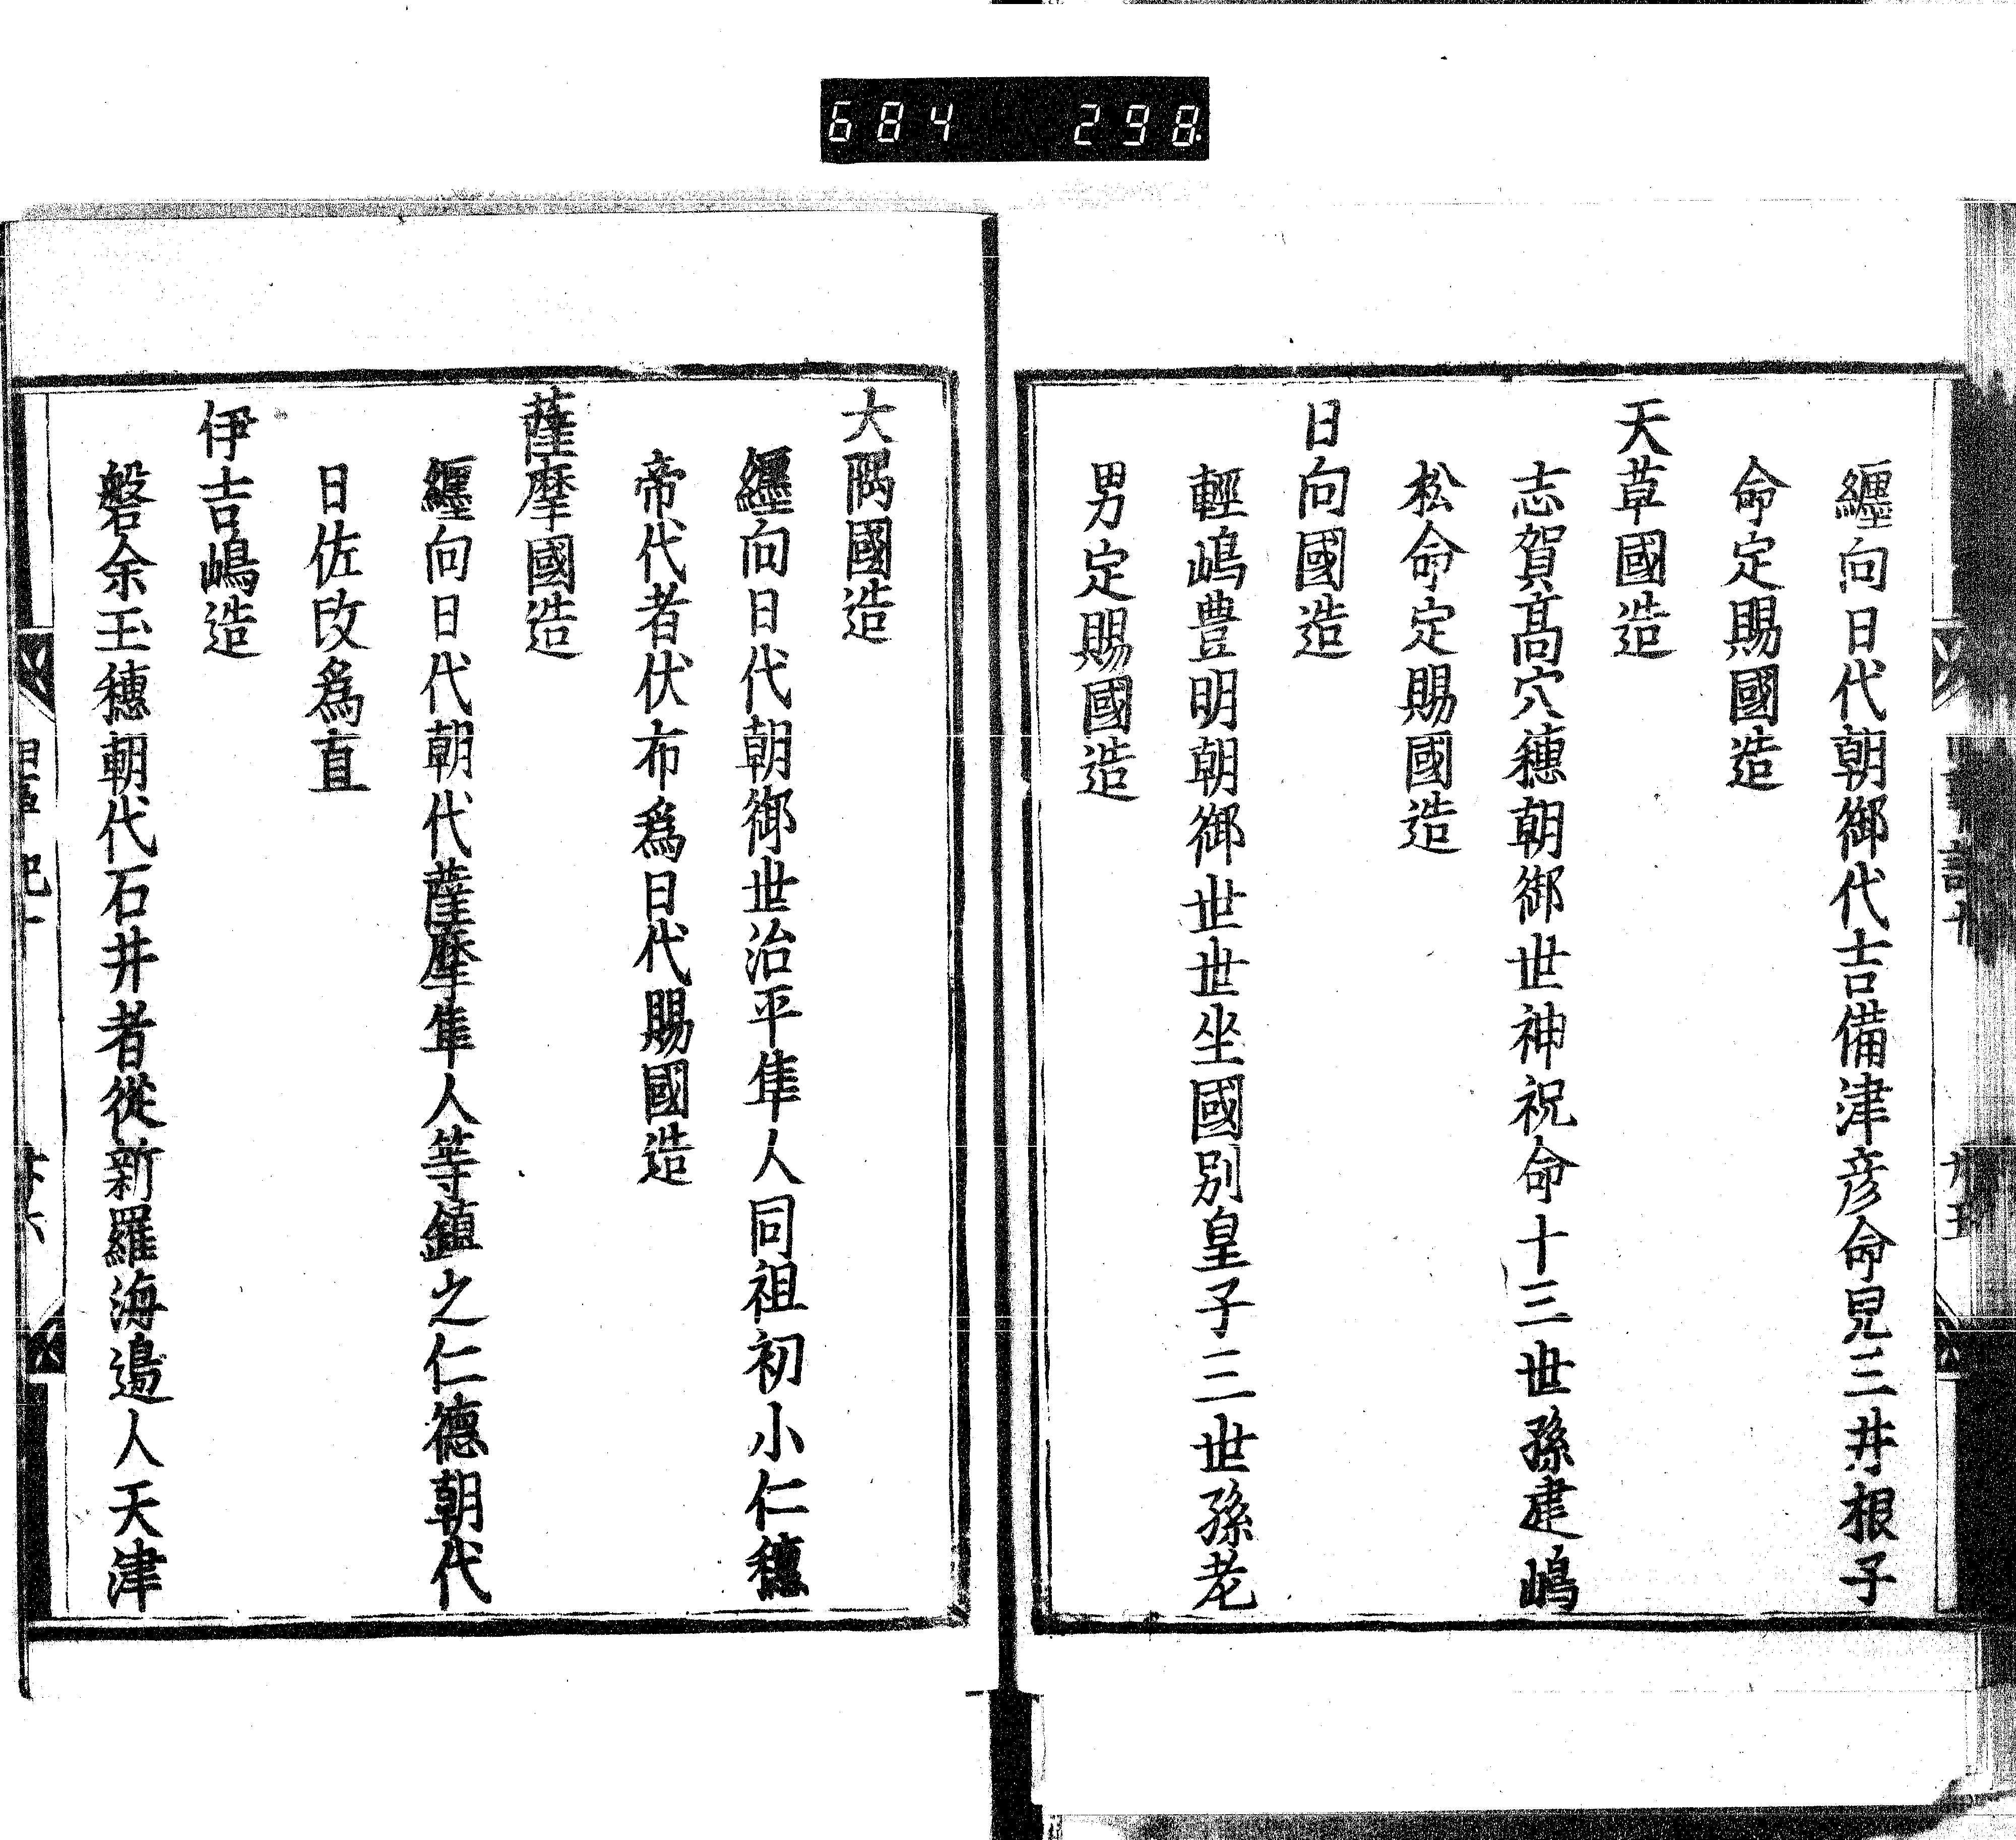 684 298
纏向日代朝御代吉備津彦命兒三井根子
命定賜國造
天草國造
志賀髙穴穗朝御世神祝命十三世孫建嶋
松命定賜國造
日向國造
輕嶋豊明朝御世世坐國別皇子三世孫老
男定賜國造
大隅國造
纏向日代朝御世治平隼人同祖初小仁德
帝代者伏布爲日代賜國造
薩摩國造
纏向日代朝代薩摩隼人等鎮之仁德朝代
日佐改爲直
伊吉嶋造
磐余玉穗朝代石井者從新羅海邊人天津